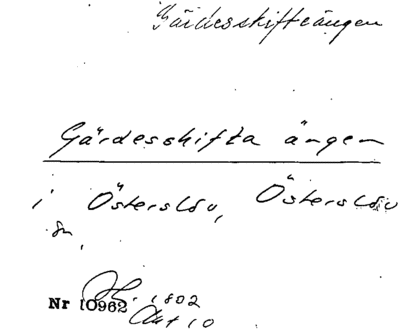 Gärdesskifteängen
Gärdesskifta ängen
i Österslöv, Österslöv
sn.
Nr 10962 1802
Akt 10